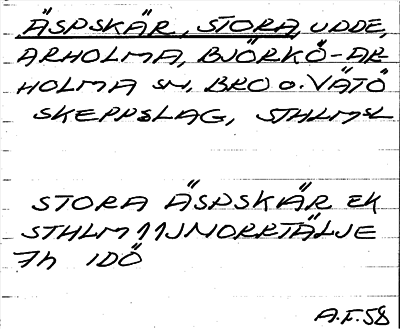 ÄSPSKÄR, STORA, UDDE,
ARHOLMA, BJÖRKÖ-AR-
HOLMA SN, BRO O. VÄTÖ
SKEPPSLAG, STHLMSL
STORA ÄSPSKÄR EK
STHLM 11J NORRTÄLJE
7h IDÖ
A.F. 58